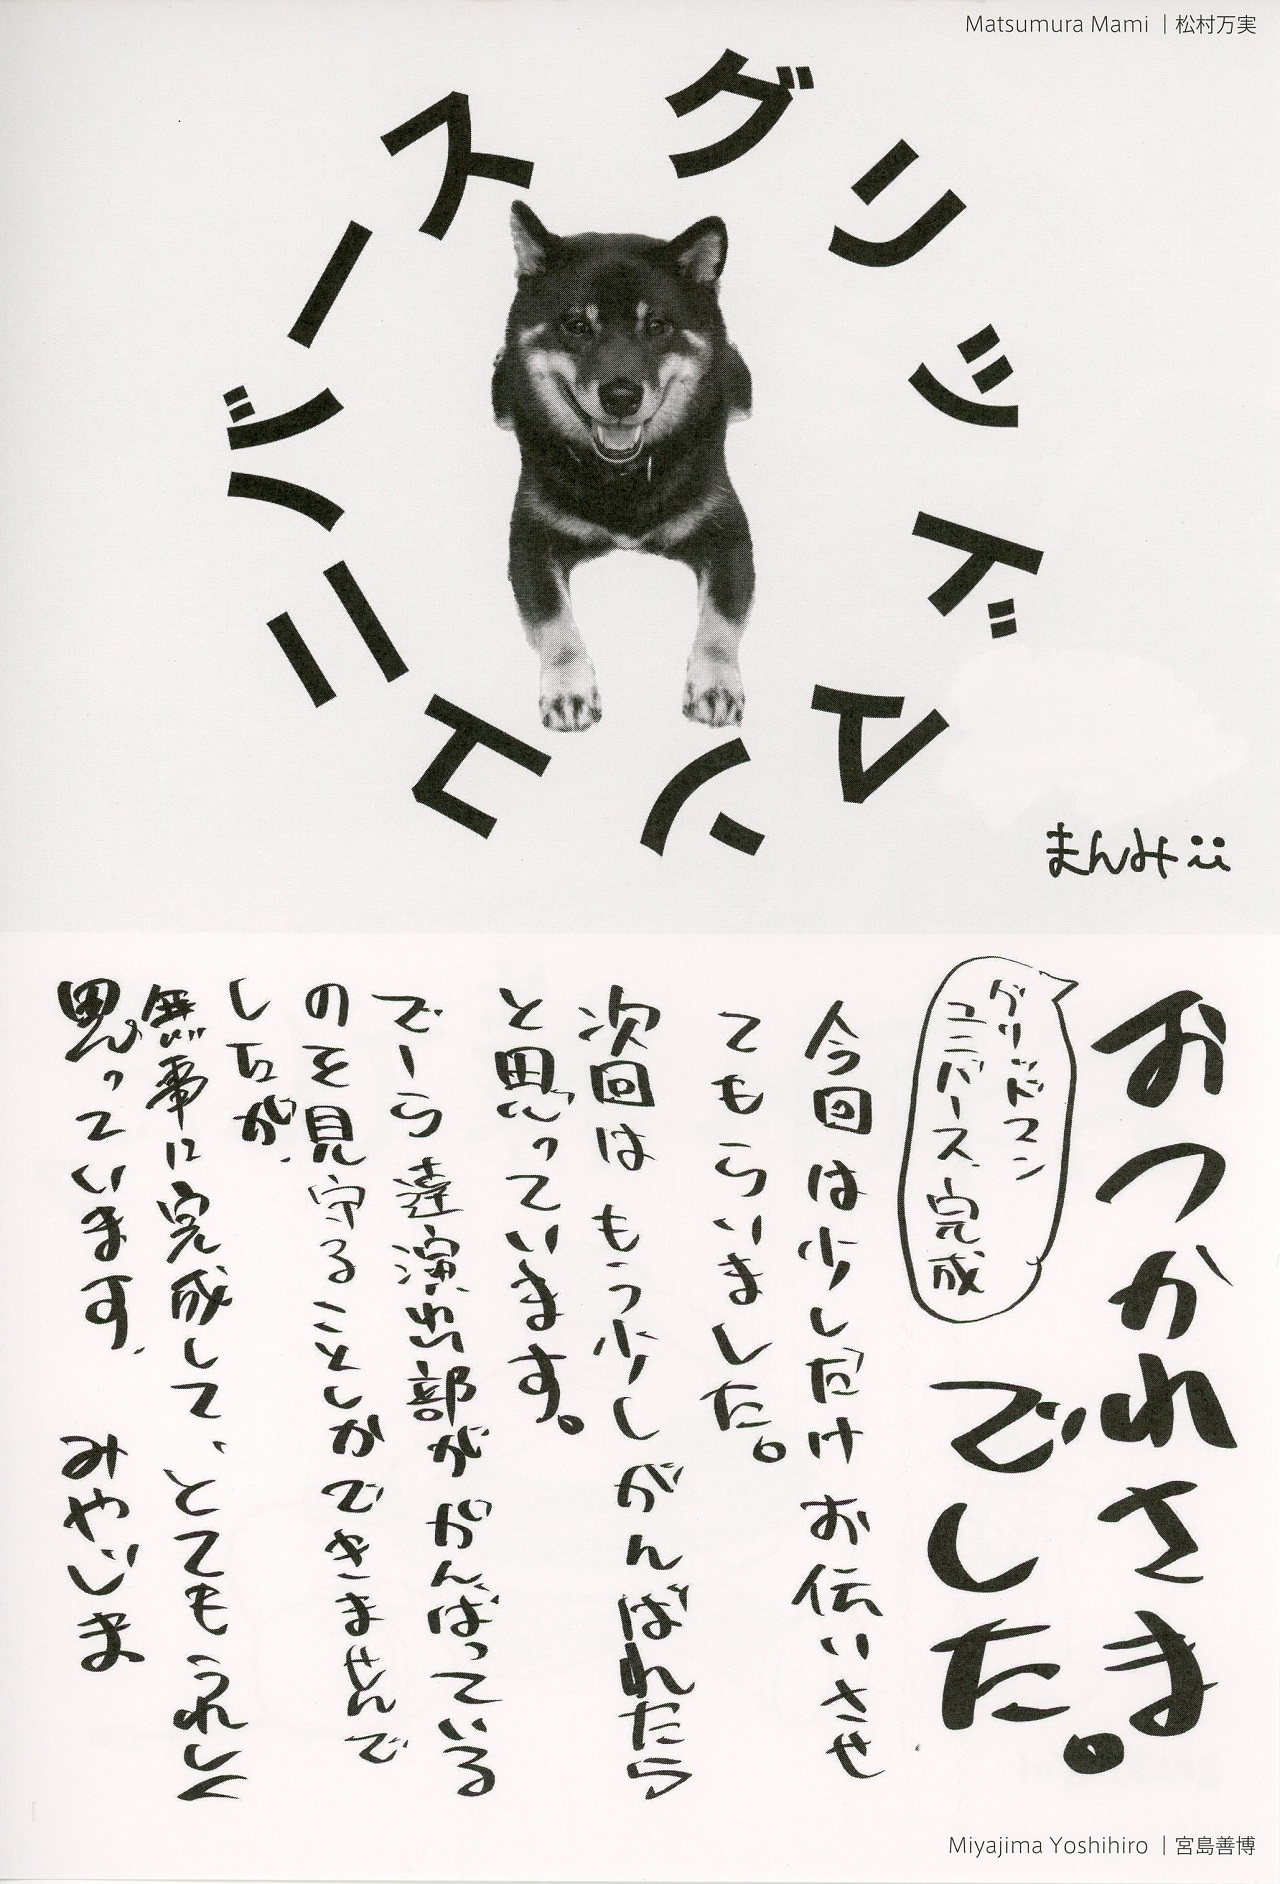 Matsumura Mami｜松村万実
グリッドマンユニバース
まんみ
おつかれさま
でした。
グリッドマン
ユニバース、完成
今回は少しだけお伝いさせ
てもらいました。
次回はもう少しがんばれたら
と思っています。
でーら達演出部ががんばっている
のを見守ることしかできませんで
したが、
無事に完成して、とてもうれしく
思っています、
みやじま
Miyajima Yoshihiro｜宮島善博